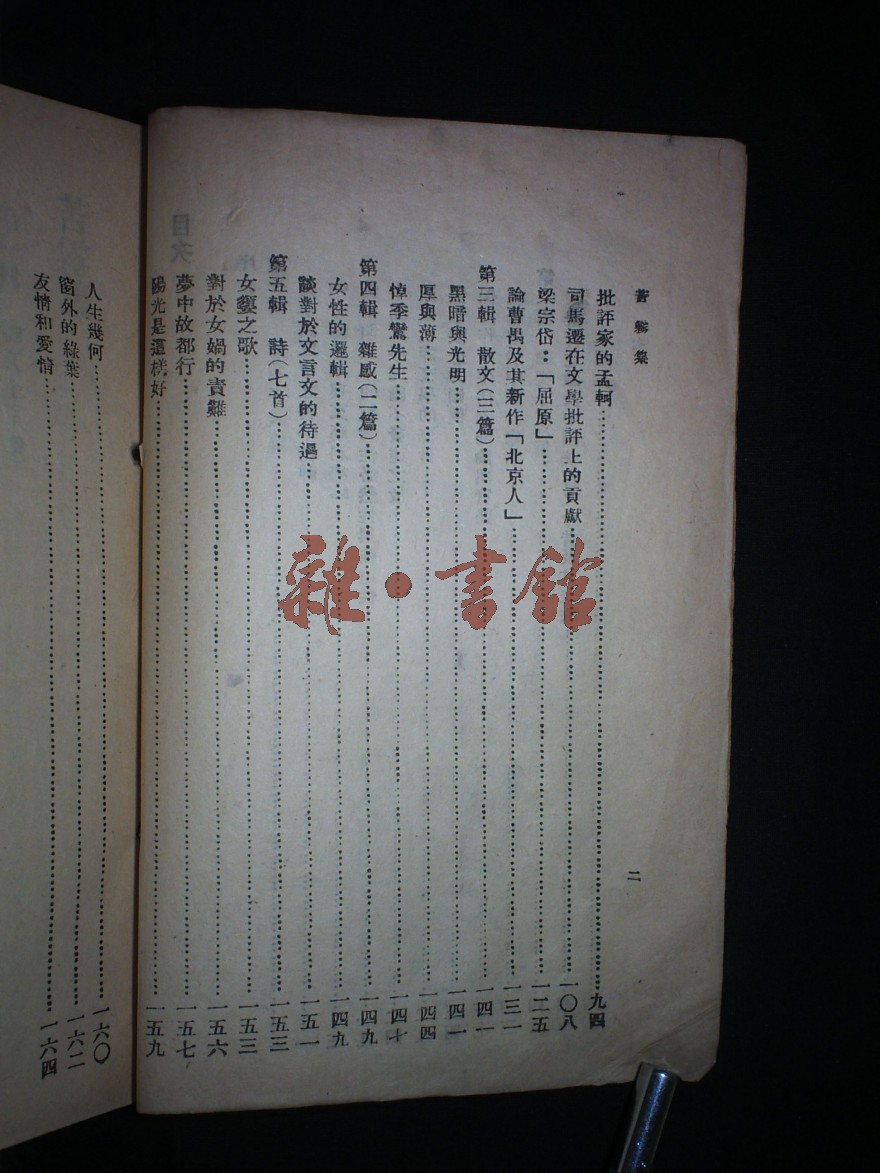 苦霧集
二
批評家的孟軻……九四
司馬遷在文學批評上的貢獻……一〇八
梁宗岱:「屈原」……一二五
論曹禺及其新作「北京人」……一三一
第三輯 散文(三篇)……一四一
黑暗與光明……一四一
厚與薄……一四四
悼季鸞先生……一四七
第四輯 雜感(二篇)……一四九
女性的邏輯……一四九
談對於文言文的待遇……一五一
第五輯 詩(七首)……一五三
女嬃之歌……一五三
對於女媧的責難……一五六
夢中故都行……一五七
陽光是這樣好……一五九
人生幾何……一六〇
窗外的綠葉……一六二
友情和愛情……一六四
目次
雜·書館